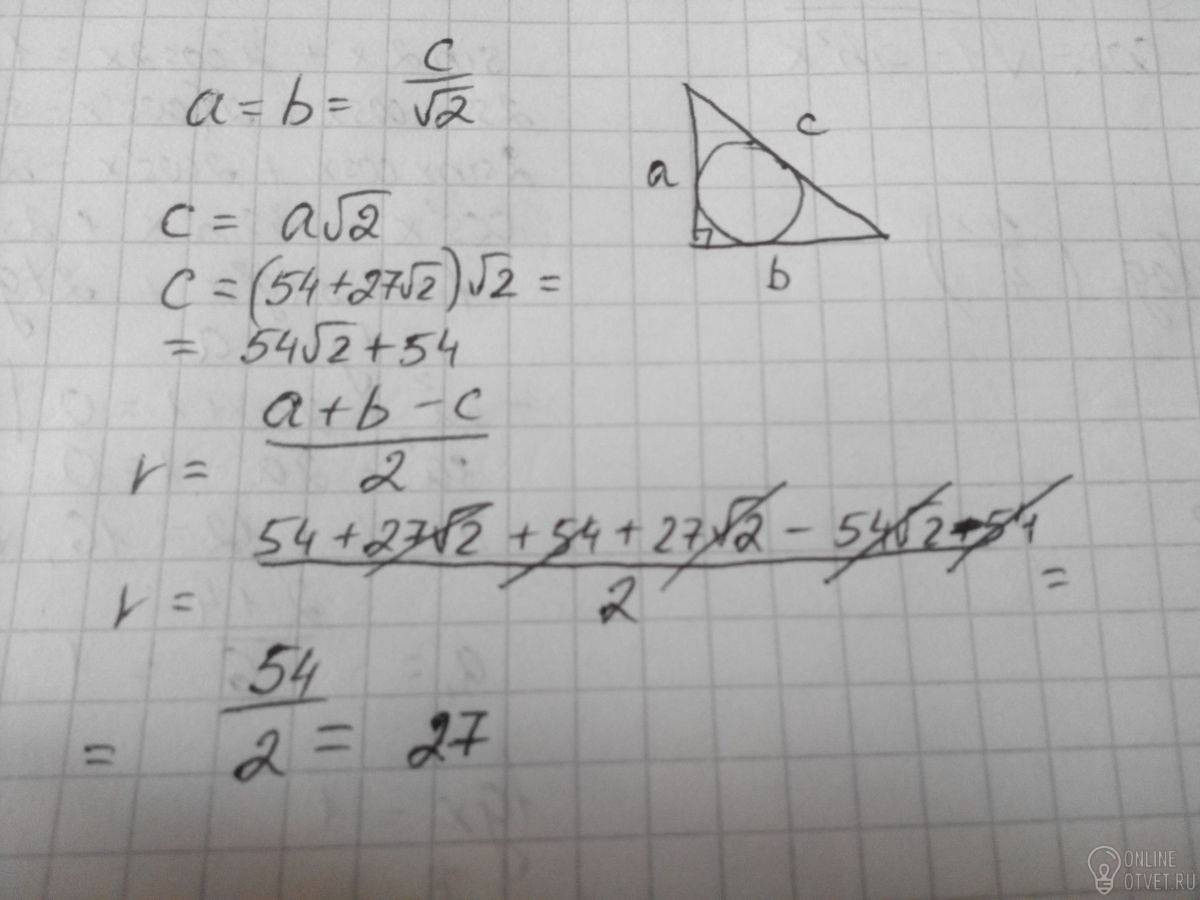 a = b = c/√2
c = a√2
c = (54+27√2)√2 =
= 54√2 + 54
r = (a + b - c)/2
r = (54 + 27√2 + 54 + 27√2 - 54√2 - 54)/2 =
= 54/2 = 27
a
c
b
ONLINE
OTVET.RU